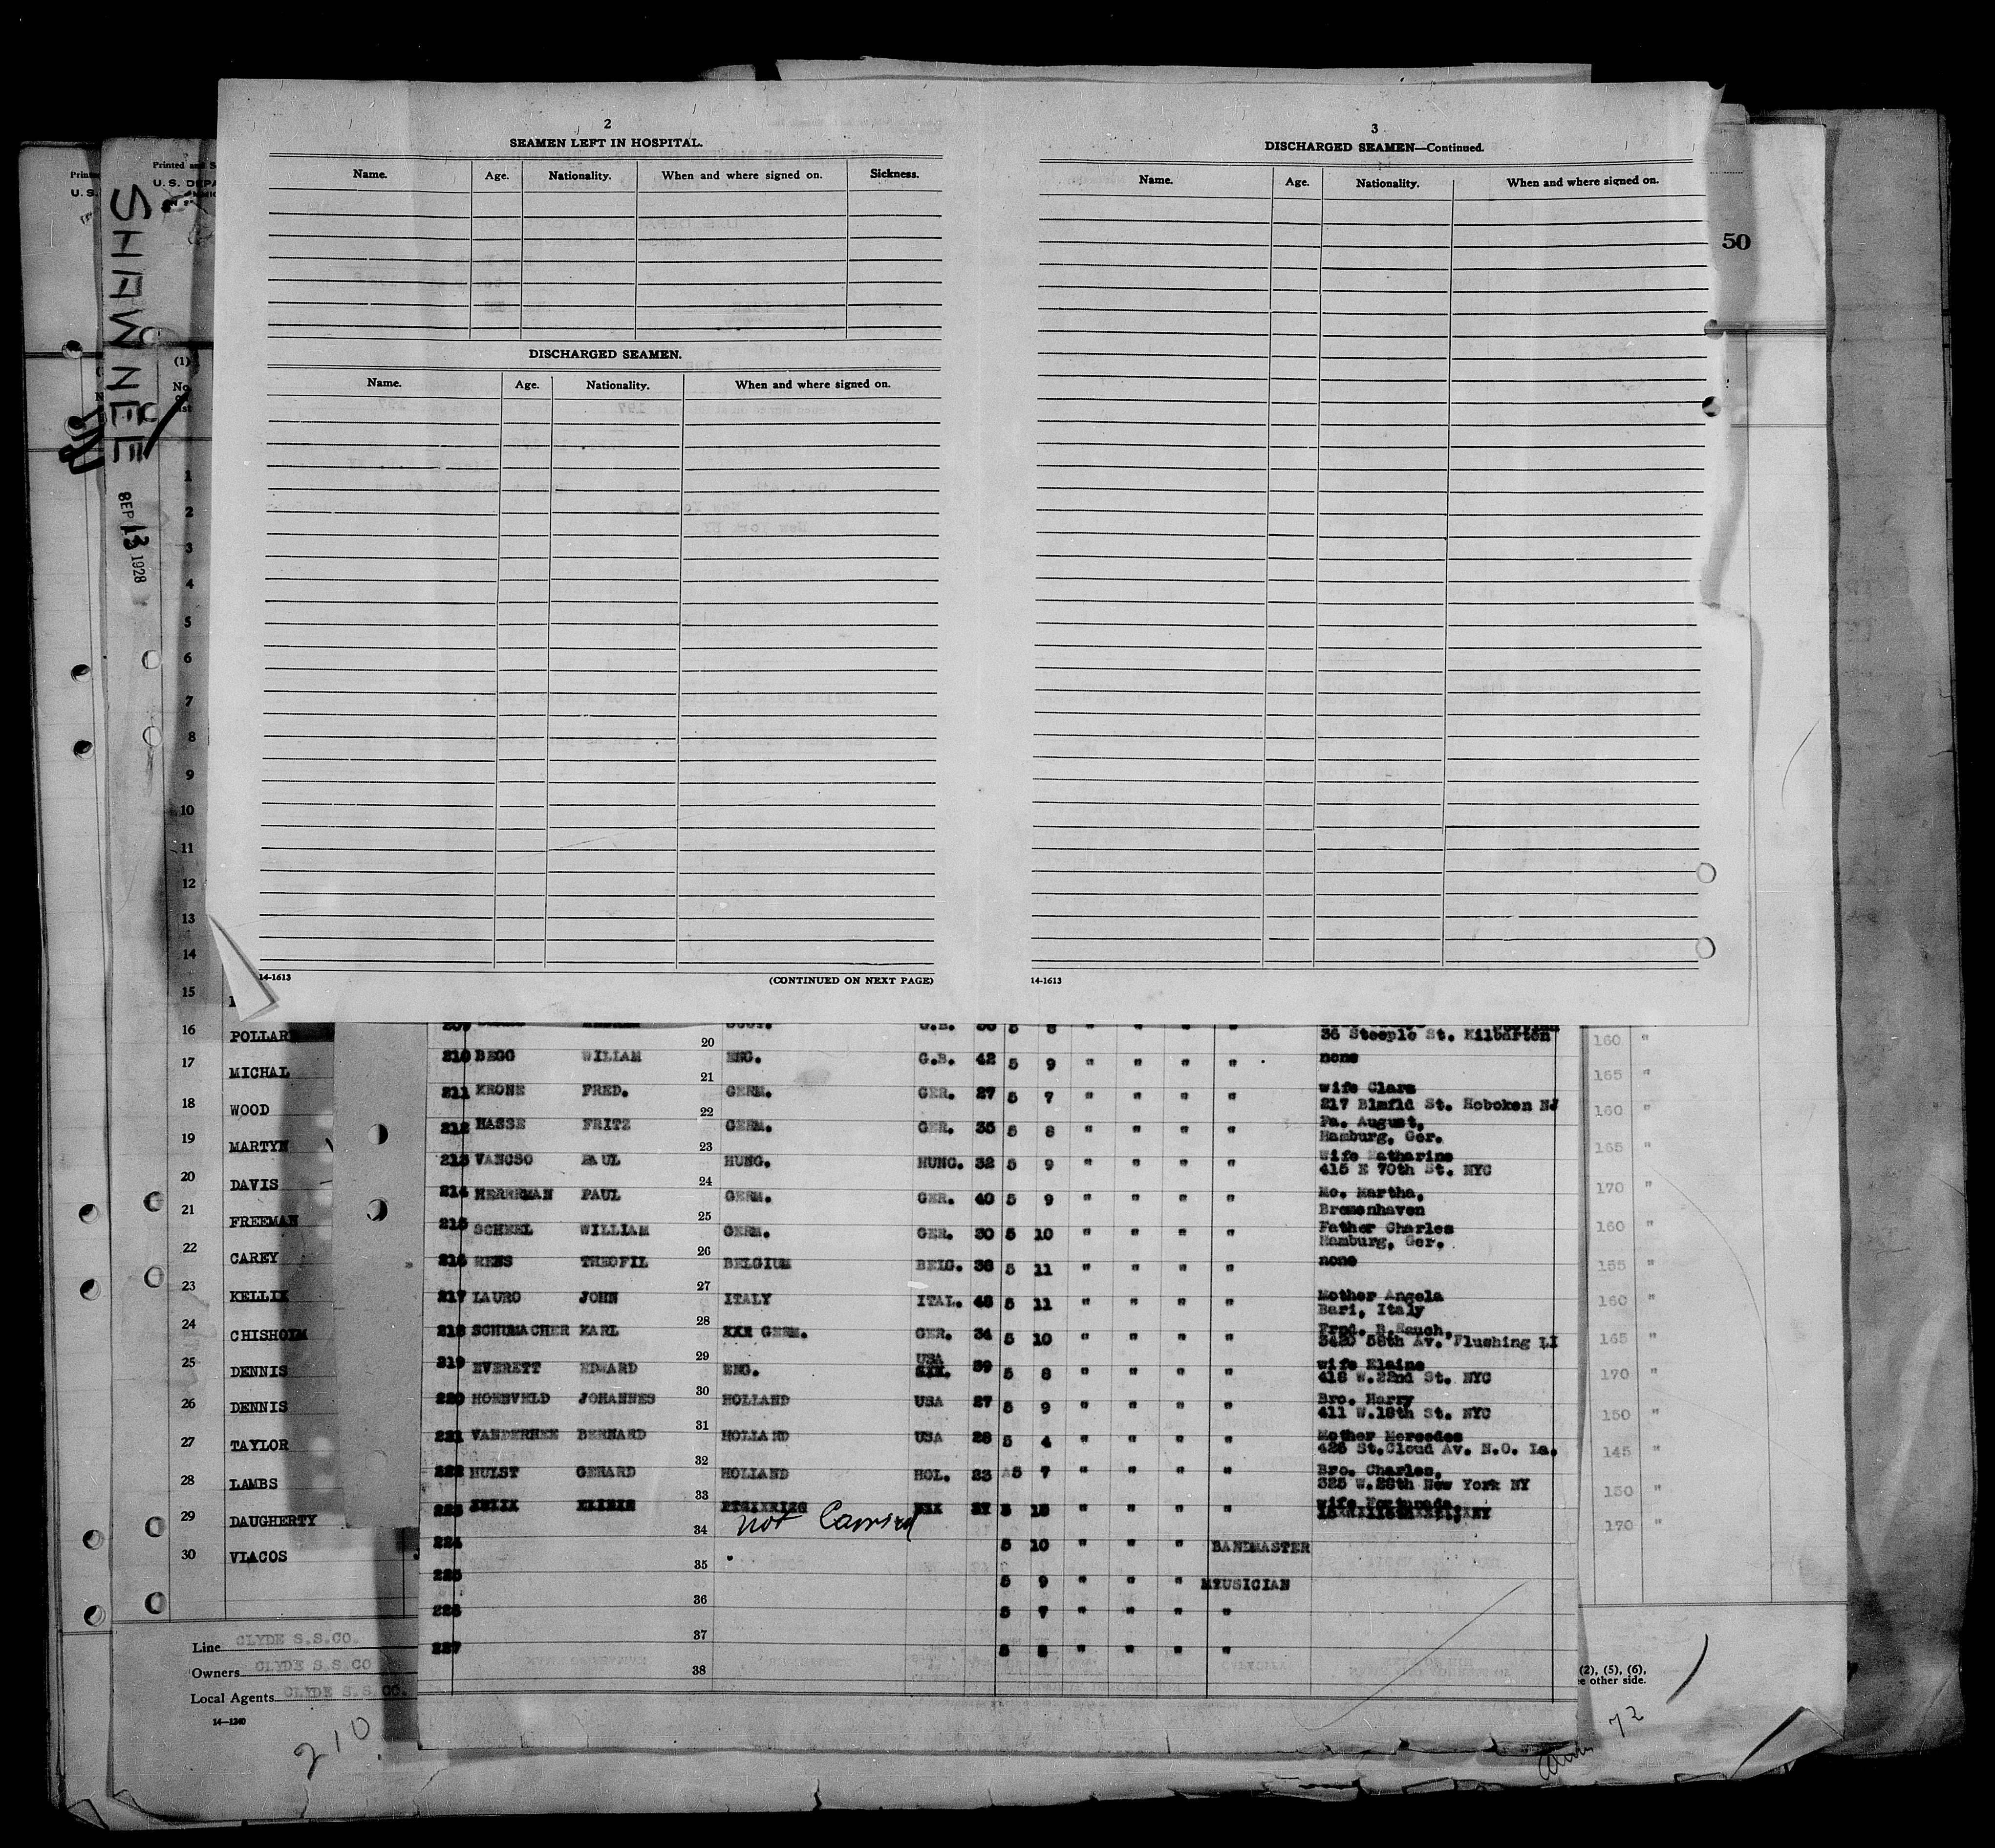 2
SEAMEN LEFT IN HOSPITAL.
Name. Age. Nationality. When and where signed on. Sickness.
DISCHARGED SEAMEN.
Name. Age. Nationality. When and where signed on.
14-1613 (CONTINUED ON NEXT PAGE)
3
DISCHARGED SEAMEN—Continued.
Name. Age. Nationality. When and where signed on.
14-1613
50
Printed and S
U. S. DEPA
SHAWNEE
SEP 13 1928
(1)
No
1
2
3
4
5
6
7
8
9
10
11
12
13
14
15
16 POLLAR
17 MICHAL
18 WOOD
19 MARTYN
20 DAVIS
21 FREEMAN
22 CAREY
23 KELLIX
24 CHISHOLM
25 DENNIS
26 DENNIS
27 TAYLOR
28 LAMBS
29 DAUGHERTY
30 VLACOS
Line CLYDE S.S.CO.
Owners CLYDE S.S.CO
Local Agents CLYDE S.S.CO.
14—1240
210
36 Steeple St. Kilbarton
20
210 BEGG WILIAM ENG. G.B. 42 5 9 " " " " none
21
211 KRONE FRED. GERM. GER. 27 5 7 " " " " wife Clara
217 Blmfld St. Hoboken NJ
22
212 HASSE FRITZ GERM. GER. 35 5 8 " " " " Fa. August,
Hamburg, Ger.
23
213 VANCSO PAUL HUNG. HUNG. 32 5 9 " " " " wife Katharine
415 E 70th St. NYC
24
214 HERRRMAN PAUL GERM. GER. 40 5 9 " " " " Mo. Martha,
Bremenhaven
25
215 SCHEEL WILLIAM GERM. GER. 30 5 10 " " " " Father Charles
Hamburg, Ger.
26
216 RENS THEOFIL BELGIUM BELG. 38 5 11 " " " " none
27
217 LAURO JOHN ITALY ITAL. 48 5 11 " " " " Mother Angela
Bari, Italy
28
218 SCHUMACHER KARL XXX GERM. GER. 34 5 10 " " " " Fred. R.Hauch,
3420 58th Av. Flushing LI
29
219 EVERETT EDWARD ENG. USA 39 5 8 " " " " wife Elaine
418 W.22nd St. NYC
30
220 HOENVELD JOHANNES HOLLAND USA 27 5 9 " " " " Bro. Harry
411 W.18th St. NYC
31
221 VANDERHEE BERNARD HOLLAND USA 28 5 4 " " " " Mother Mercedes
426 St.Cloud Av. N.O. La.
32
222 HULST GERARD HOLLAND HOL. 23 5 7 " " " " Bro. Charles,
325 W.28th New York NY
33
223 not Carried
34
224 5 10 " " " BANDMASTER
35
225 5 9 " " " MUSICIAN
36
226 5 7 " " " "
37
227 5 8 " " " "
38
160 "
165 "
160 "
165 "
170 "
160 "
155 "
160 "
165 "
170 "
150 "
145 "
150 "
170 "
(2), (5), (6),
e other side.
72